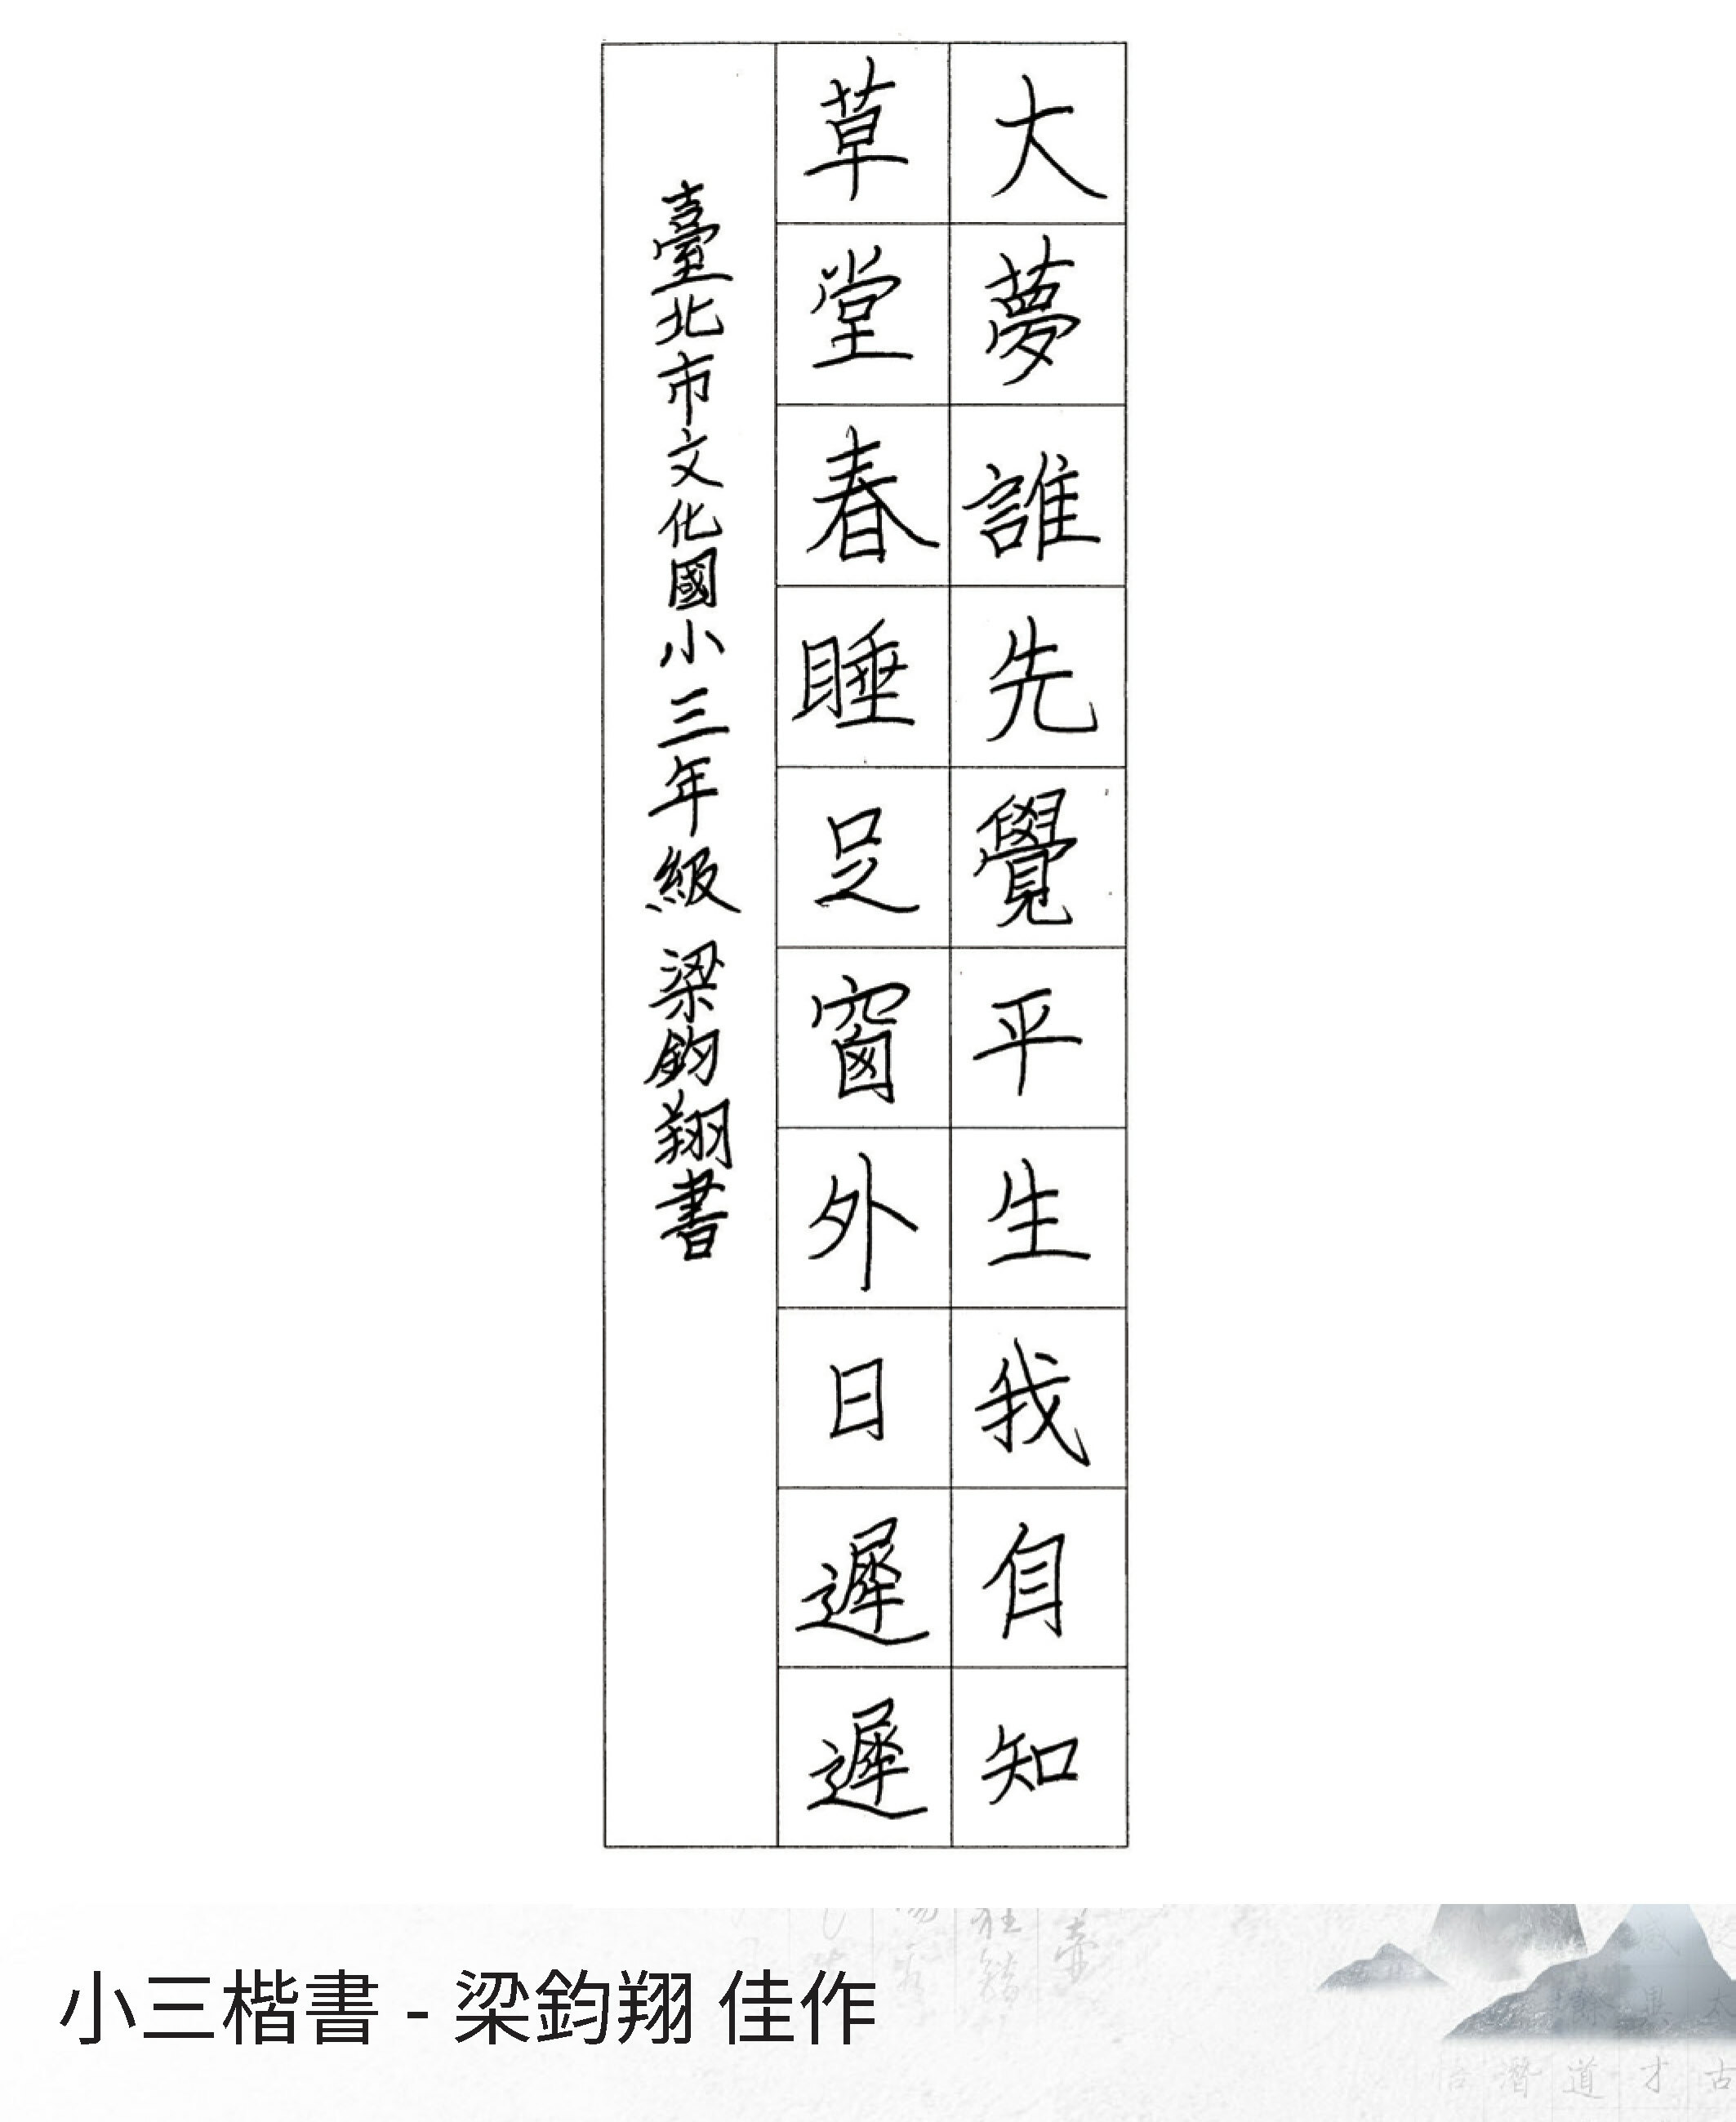 大夢誰先覺平生我自知
草堂春睡足窗外日遲遲
臺北市文化國小三年級 梁鈞翔書
小三楷書 - 梁鈞翔 佳作